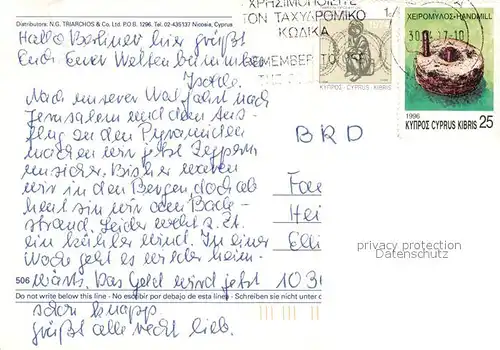 Distributors: N.G. TRIARCHOS & Co. Ltd. P.O. 1296, Tel. 02-435137 Nicosia, Cyprus
ΧΡΗΣΙΜΟΠΟΙΕΙΤΕ
ΤΟΝ ΤΑΧΥΔΡΟΜΙΚΟ
ΚΩΔΙΚΑ
REMEMBER TO
THE
ΚΥΠΡΟΣ CYPRUS KIBRIS
ΧΕΙΡΟΜΥΛΟΣ·HANDMILL
1996
ΚΥΠΡΟΣ CYPRUS KIBRIS 25
Hallo Berliner hier grüßt
Euch Euer
Nach unserer Wallfahrt nach
Jerusalem und dem Aus-
flug zu den Pyramiden
machen wir jetzt Zypern
unsicher. Bisher waren
wir in den Bergen, doch ab
heut sin wir am
strand. Leider weht z. Zt.
ein kühler Wind. In einer
Woche geht es wieder heim-
wärts. Das Geld wird jetzt
schon knapp.
Grüßt alle recht lieb.
BRD
1030
506
Do not write below this line - No escribir por debajo de esta línea - Schreiben sie nicht unter
privacy protection
Datenschutz